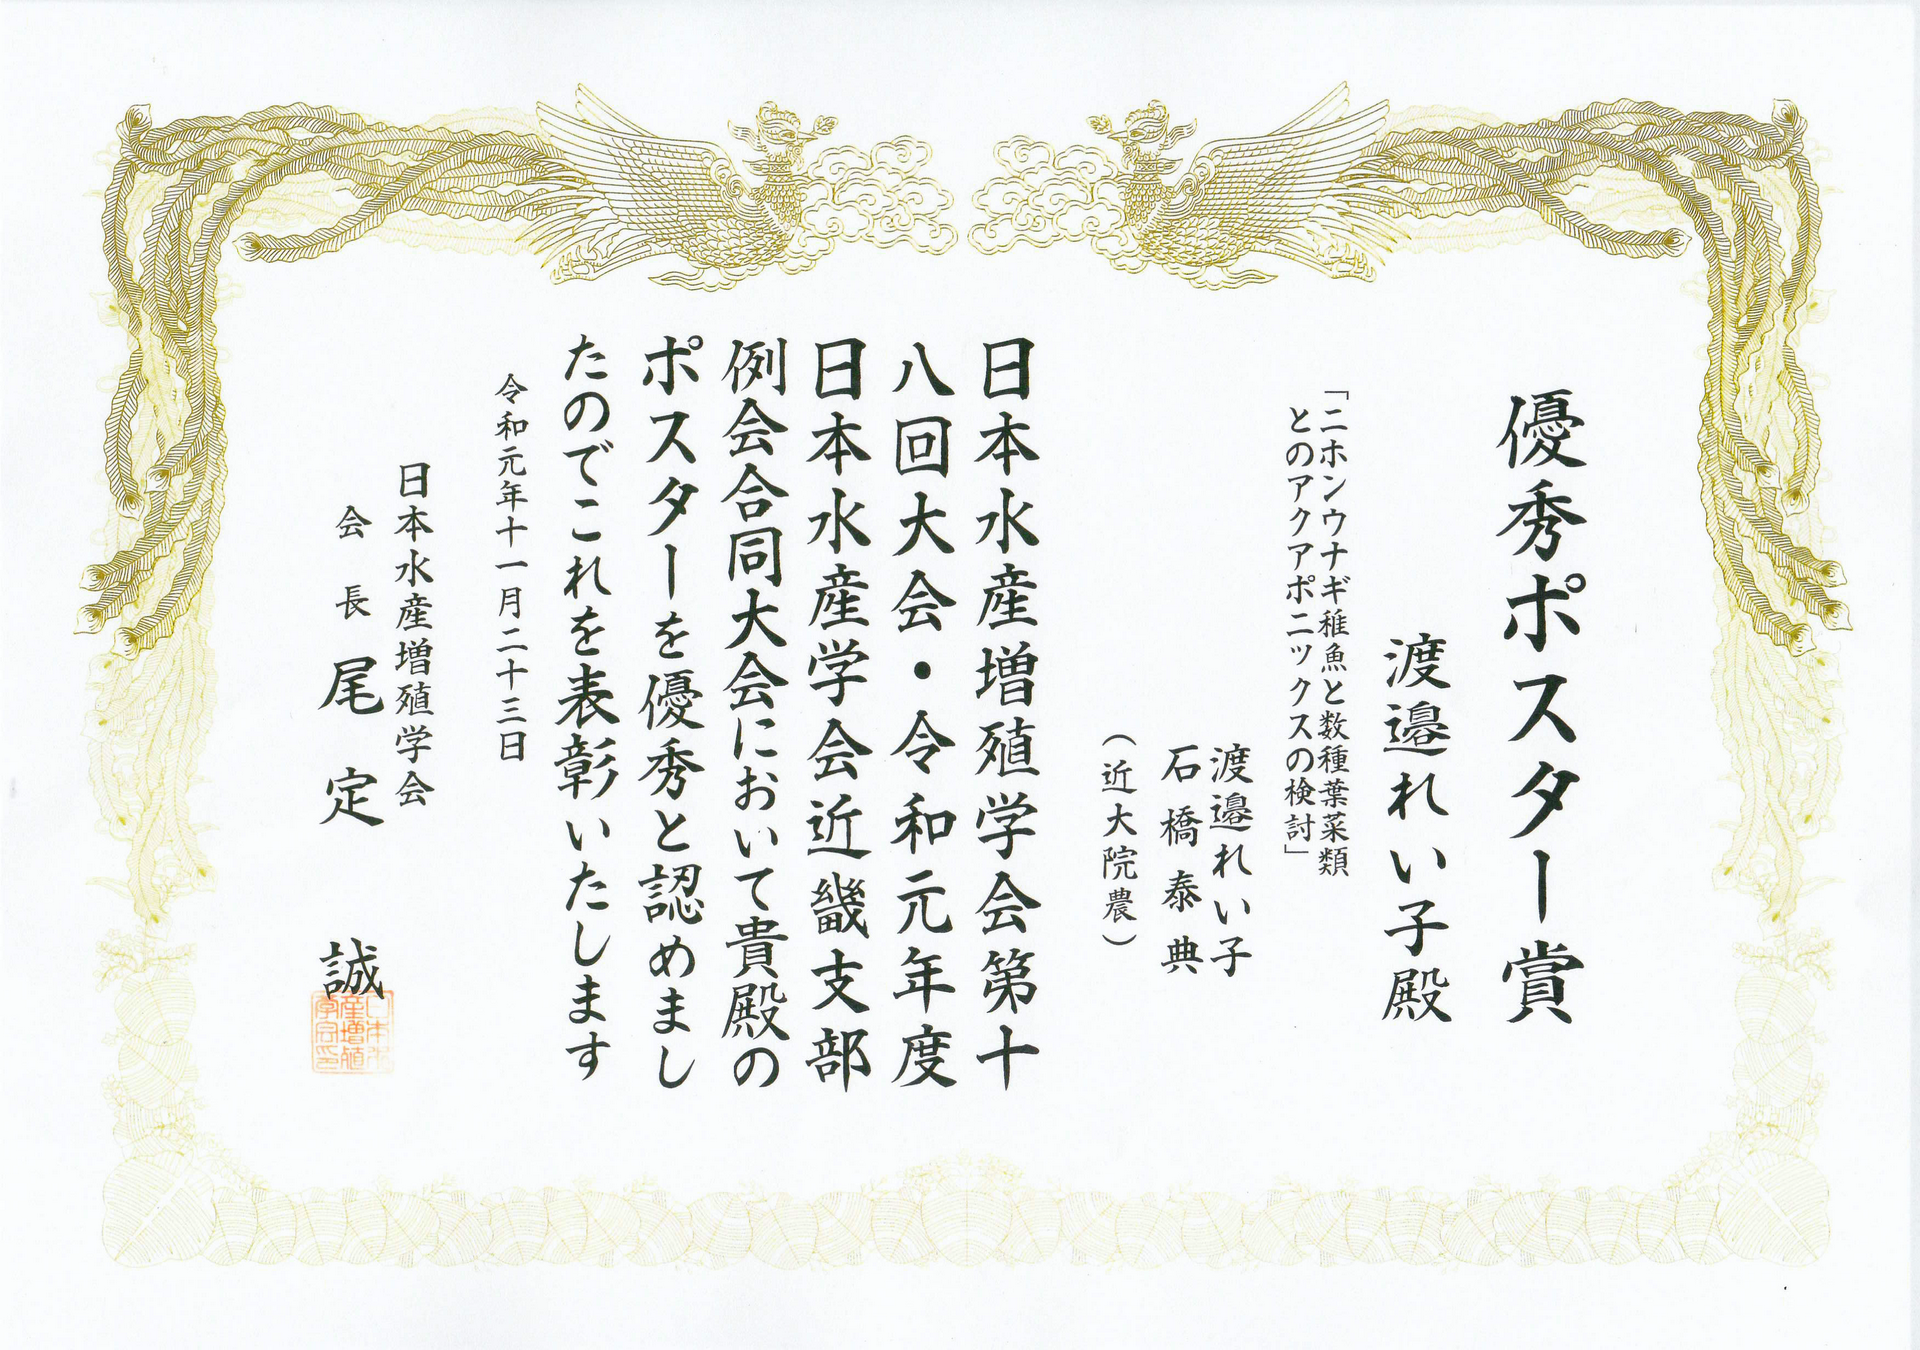 優秀ポスター賞
渡邉れい子殿
「ニホンウナギ稚魚と数種葉菜類
とのアクアポニックスの検討」
渡邉れい子
石橋泰典
（近大院農）
日本水産増殖学会第十
八回大会・令和元年度
日本水産学会近畿支部
例会合同大会において貴殿の
ポスターを優秀と認めまし
たのでこれを表彰いたします
令和元年十一月二十三日
日本水産増殖学会
会長 尾定 誠
日本水
産増殖
学会印